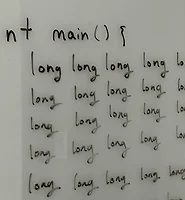 nt main() {
long long long long lo
long long long long lo
long long long long lo
long long long long lo
long long long long long
long long long